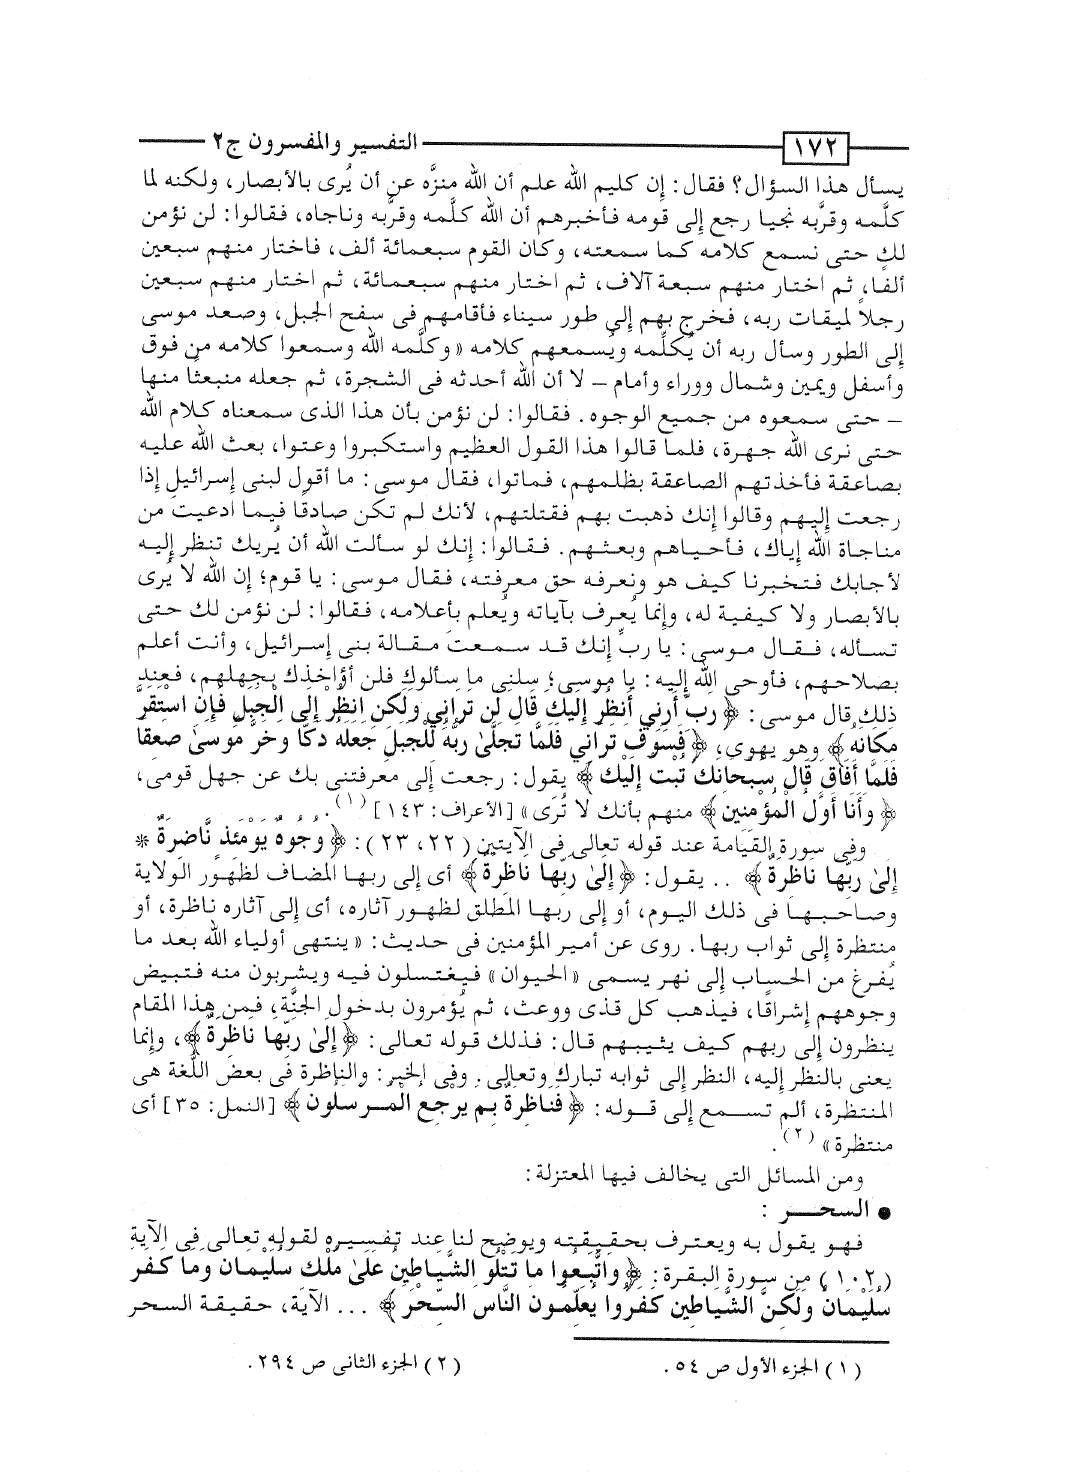 ١٧٢ التفسير والمفسرون ج٢
يسأل هذا السؤال؟ فقال: إن كليم الله علم أن الله منزَّه عن أن يُرى بالأبصار، ولكنه لما
كلَّمه وقرَّبه نجيا رجع إلى قومه فأخبرهم أن الله كلَّمه وقرَّبه وناجاه، فقالوا: لن نؤمن
لك حتى نسمع كلامه كما سمعته، وكان القوم سبعمائة ألف، فاختار منهم سبعين
ألفا، ثم اختار منهم سبعة آلاف، ثم اختار منهم سبعمائة، ثم اختار منهم سبعين
رجلاً لميقات ربه، فخرج بهم إلى طور سيناء فأقامهم فى سفح الجبل، وصعد موسى
إلى الطور وسأل ربه أن يُكلِّمه ويُسمعهم كلامه « وكلَّمه الله وسمعوا كلامه من فوق
وأسفل ويمين وشمال ووراء وأمام – لا أن الله أحدثه فى الشجرة، ثم جعله منبعثًا منها
– حتى سمعوه من جميع الوجوه. فقالوا: لن نؤمن بأن هذا الذى سمعناه كلام الله
حتى نرى الله جهرة، فلما قالوا هذا القول العظيم واستكبروا وعتوا، بعث الله عليه
بصاعقة فأخذتهم الصاعقة بظلمهم، فماتوا، فقال موسى: ما أقول لبنى إسرائيل إذا
رجعت إليهم وقالوا إنك ذهبت بهم فقتلتهم، لأنك لم تكن صادقًا فيما ادعيت من
مناجاة الله إياك، فأحياهم وبعثهم. فقالوا: إنك لو سألت الله أن يُريك تنظر إليه
لأجابك فتخبرنا كيف هو ونعرفه حق معرفته، فقال موسى: يا قوم؛ إن الله لا يُرى
بالأبصار ولا كيفية له، وإنما يُعرف بآياته ويُعلم بأعلامه، فقالوا: لن نؤمن لك حتى
تسأله، فقال موسى: يا ربِّ إنك قد سمعتَ مقالة بنى إسرائيل، وأنت أعلم
بصلاحهم، فأوحى الله إليه: يا موسى؛ سلنى ما سألوك فلن أؤاخذك بجهلهم، فعند
ذلك قال موسى: ﴿ رَبِّ أَرِنِي أَنظُرْ إِلَيْكَ قَالَ لَن تَرَانِي وَلَكِنِ انظُرْ إِلَى الْجَبَلِ فَإِنِ اسْتَقَرَّ
مَكَانَهُ ﴾ وهو يهوى، ﴿ فَسَوْفَ تَرَانِي فَلَمَّا تَجَلَّىٰ رَبُّهُ لِلْجَبَلِ جَعَلَهُ دَكًّا وَخَرَّ مُوسَىٰ صَعِقًا
فَلَمَّا أَفَاقَ قَالَ سُبْحَانَكَ تُبْتُ إِلَيْكَ ﴾ يقول: رجعت إلى معرفتنى بك عن جهل قومى،
﴿ وَأَنَا أَوَّلُ الْمُؤْمِنِينَ ﴾ منهم بأنك لا تُرَى » [الأعراف: ١٤٣] (١).
وفى سورة القيامة عند قوله تعالى فى الآيتين (٢٢، ٢٣): ﴿ وُجُوهٌ يَوْمَئِذٍ نَّاضِرَةٌ *
إِلَىٰ رَبِّهَا نَاظِرَةٌ ﴾ .. يقول: ﴿ إِلَىٰ رَبِّهَا نَاظِرَةٌ ﴾ أى إلى ربها المضاف لظهور الولاية
وصاحبها فى ذلك اليوم، أو إلى ربها المطلق لظهور آثاره، أى إلى آثاره ناظرة، أو
منتظرة إلى ثواب ربها. روى عن أمير المؤمنين فى حديث: « ينتهى أولياء الله بعد ما
يُفرغ من الحساب إلى نهر يسمى « الحيوان » فيغتسلون فيه ويشربون منه فتبيض
وجوههم إشراقًا، فيذهب كل قذى ووعث، ثم يُؤمرون بدخول الجنَّة، فمن هذا المقام
ينظرون إلى ربهم كيف يثيبهم قال: فذلك قوله تعالى: ﴿ إِلَىٰ رَبِّهَا نَاظِرَةٌ ﴾، وإنما
يعنى بالنظر إليه، النظر إلى ثوابه تبارك وتعالى. وفى الخبر: والناظرة فى بعض اللُّغة هى
المنتظرة، ألم تسمع إلى قوله: ﴿ فَنَاظِرَةٌ بِمَ يَرْجِعُ الْمُرْسَلُونَ ﴾ [النمل: ٣٥] أى
منتظرة » (٢).
ومن المسائل التى يخالف فيها المعتزلة:
● السحر :
فهو يقول به ويعترف بحقيقته ويوضح لنا عند تفسيره لقوله تعالى فى الآية
(١٠٢) من سورة البقرة: ﴿ وَاتَّبَعُوا مَا تَتْلُو الشَّيَاطِينُ عَلَىٰ مُلْكِ سُلَيْمَانَ وَمَا كَفَرَ
سُلَيْمَانُ وَلَكِنَّ الشَّيَاطِينَ كَفَرُوا يُعَلِّمُونَ النَّاسَ السِّحْرَ ﴾ ... الآية، حقيقة السحر
(١) الجزء الأول ص ٥٤. (٢) الجزء الثانى ص ٢٩٤.